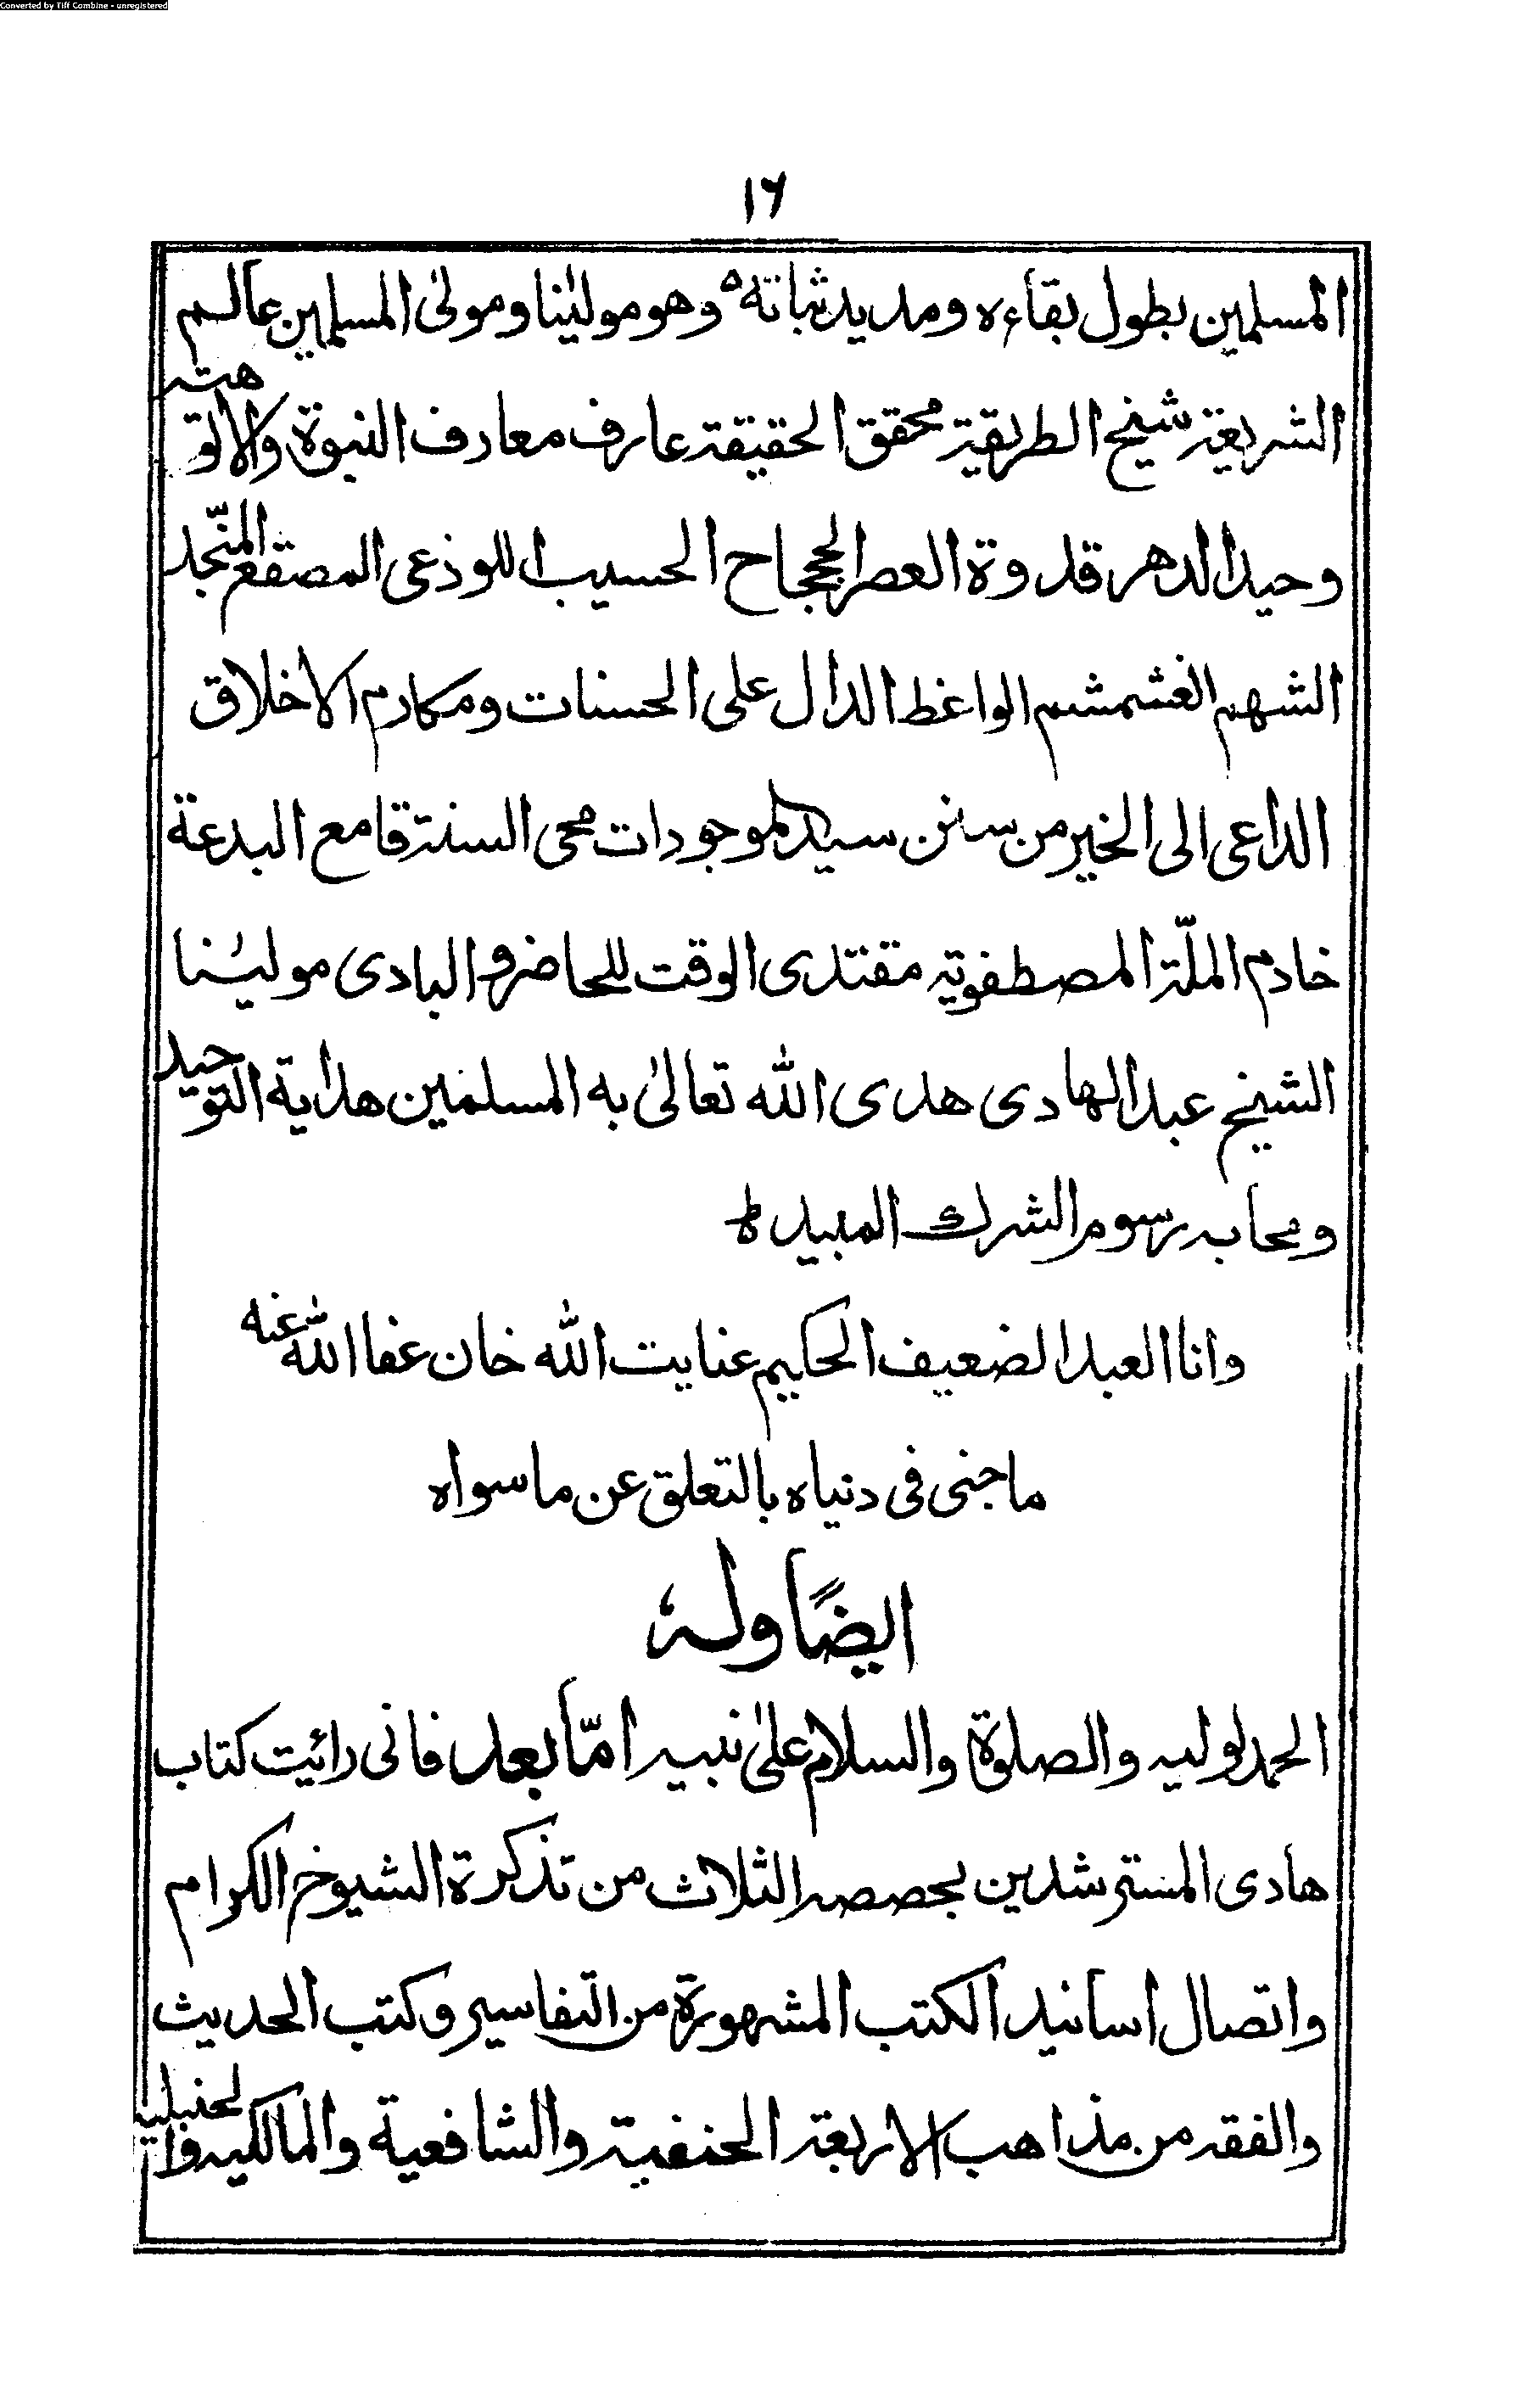 Converted by Tiff Combine - unregistered
١٦
المسلمين بطول بقاءه ومديد ثباته ه وهو مولٰينا ومولىٰ المسلمين عالم
الشريعة شيخ الطريقية محقق الحقيقة عارف معارف النبوة والالوهته
وحيد الدهر قدوة العصر الججاح الحسيب اللوذعى المصقع المنّجد
الشهم الغشمشم الواغط الدال على الحسنات ومكارم الاخلاق
الداعى الى الخير من سنن سيد الموجودات محى السنة قامع البدعة
خادم الملّة المصطفوية مقتدى الوقت للحاضر و البادى مولٰينا
الشيخ عبد الهادى هدى الله تعالىٰ به المسلمين هداية التوحيد
ومحا به رسوم الشرك المبيد ه
وانا العبد الضعيف الحكيم عنايت الله خان عفا الله عنه
ما جنى فى دنياه بالتعلق عن ما سواه
ايضًا وله
الحمد لوليه والصلوة والسلام علىٰ نبيه امّا بعد فانى رائيت كتاب
هادى المسترشدين بحصصه الثلاث من تذكرة الشيوخ الكرام
واتصال اسانيد الكتب المشهورة من التفاسير وكتب الحديث
والفقه من مذاهب الاربعة الحنفية والشافعية والمالكيه والحنبلية